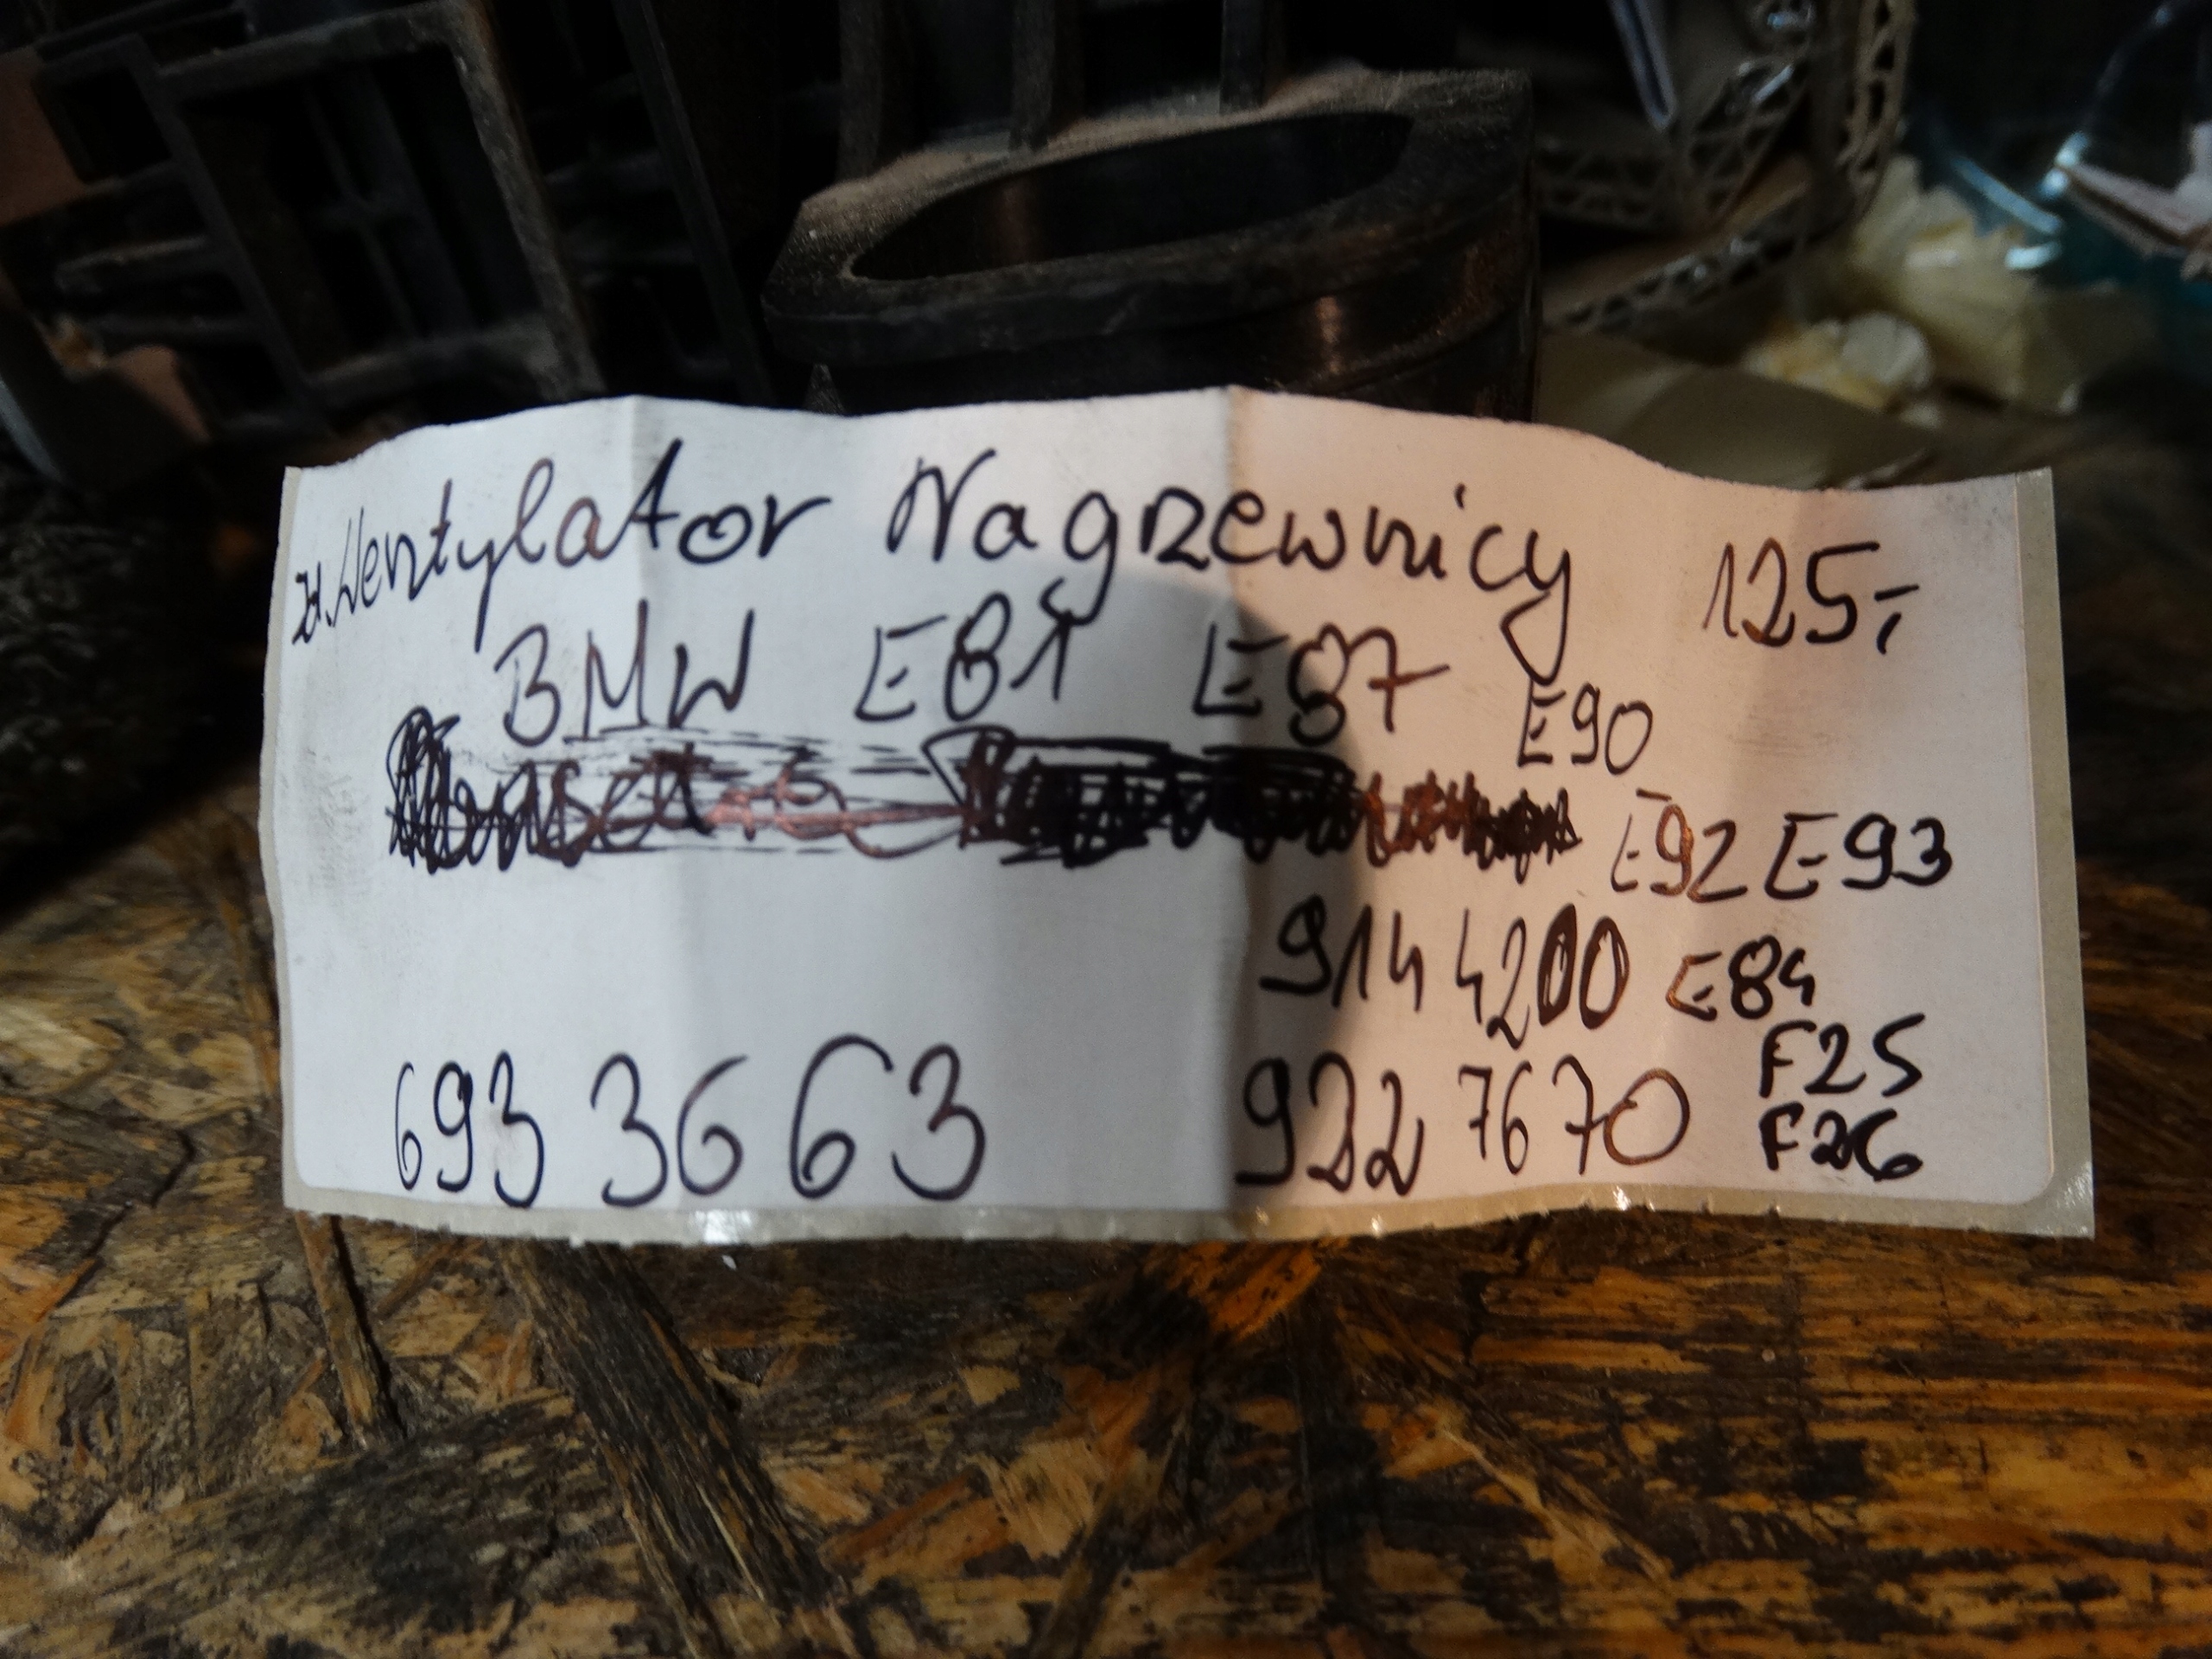 Wentylator Nagrzewnicy 125,-
BMW E81 E87 E90
E92 E93
914 4200 E84
F25
693 36 63 922 76 70
F26